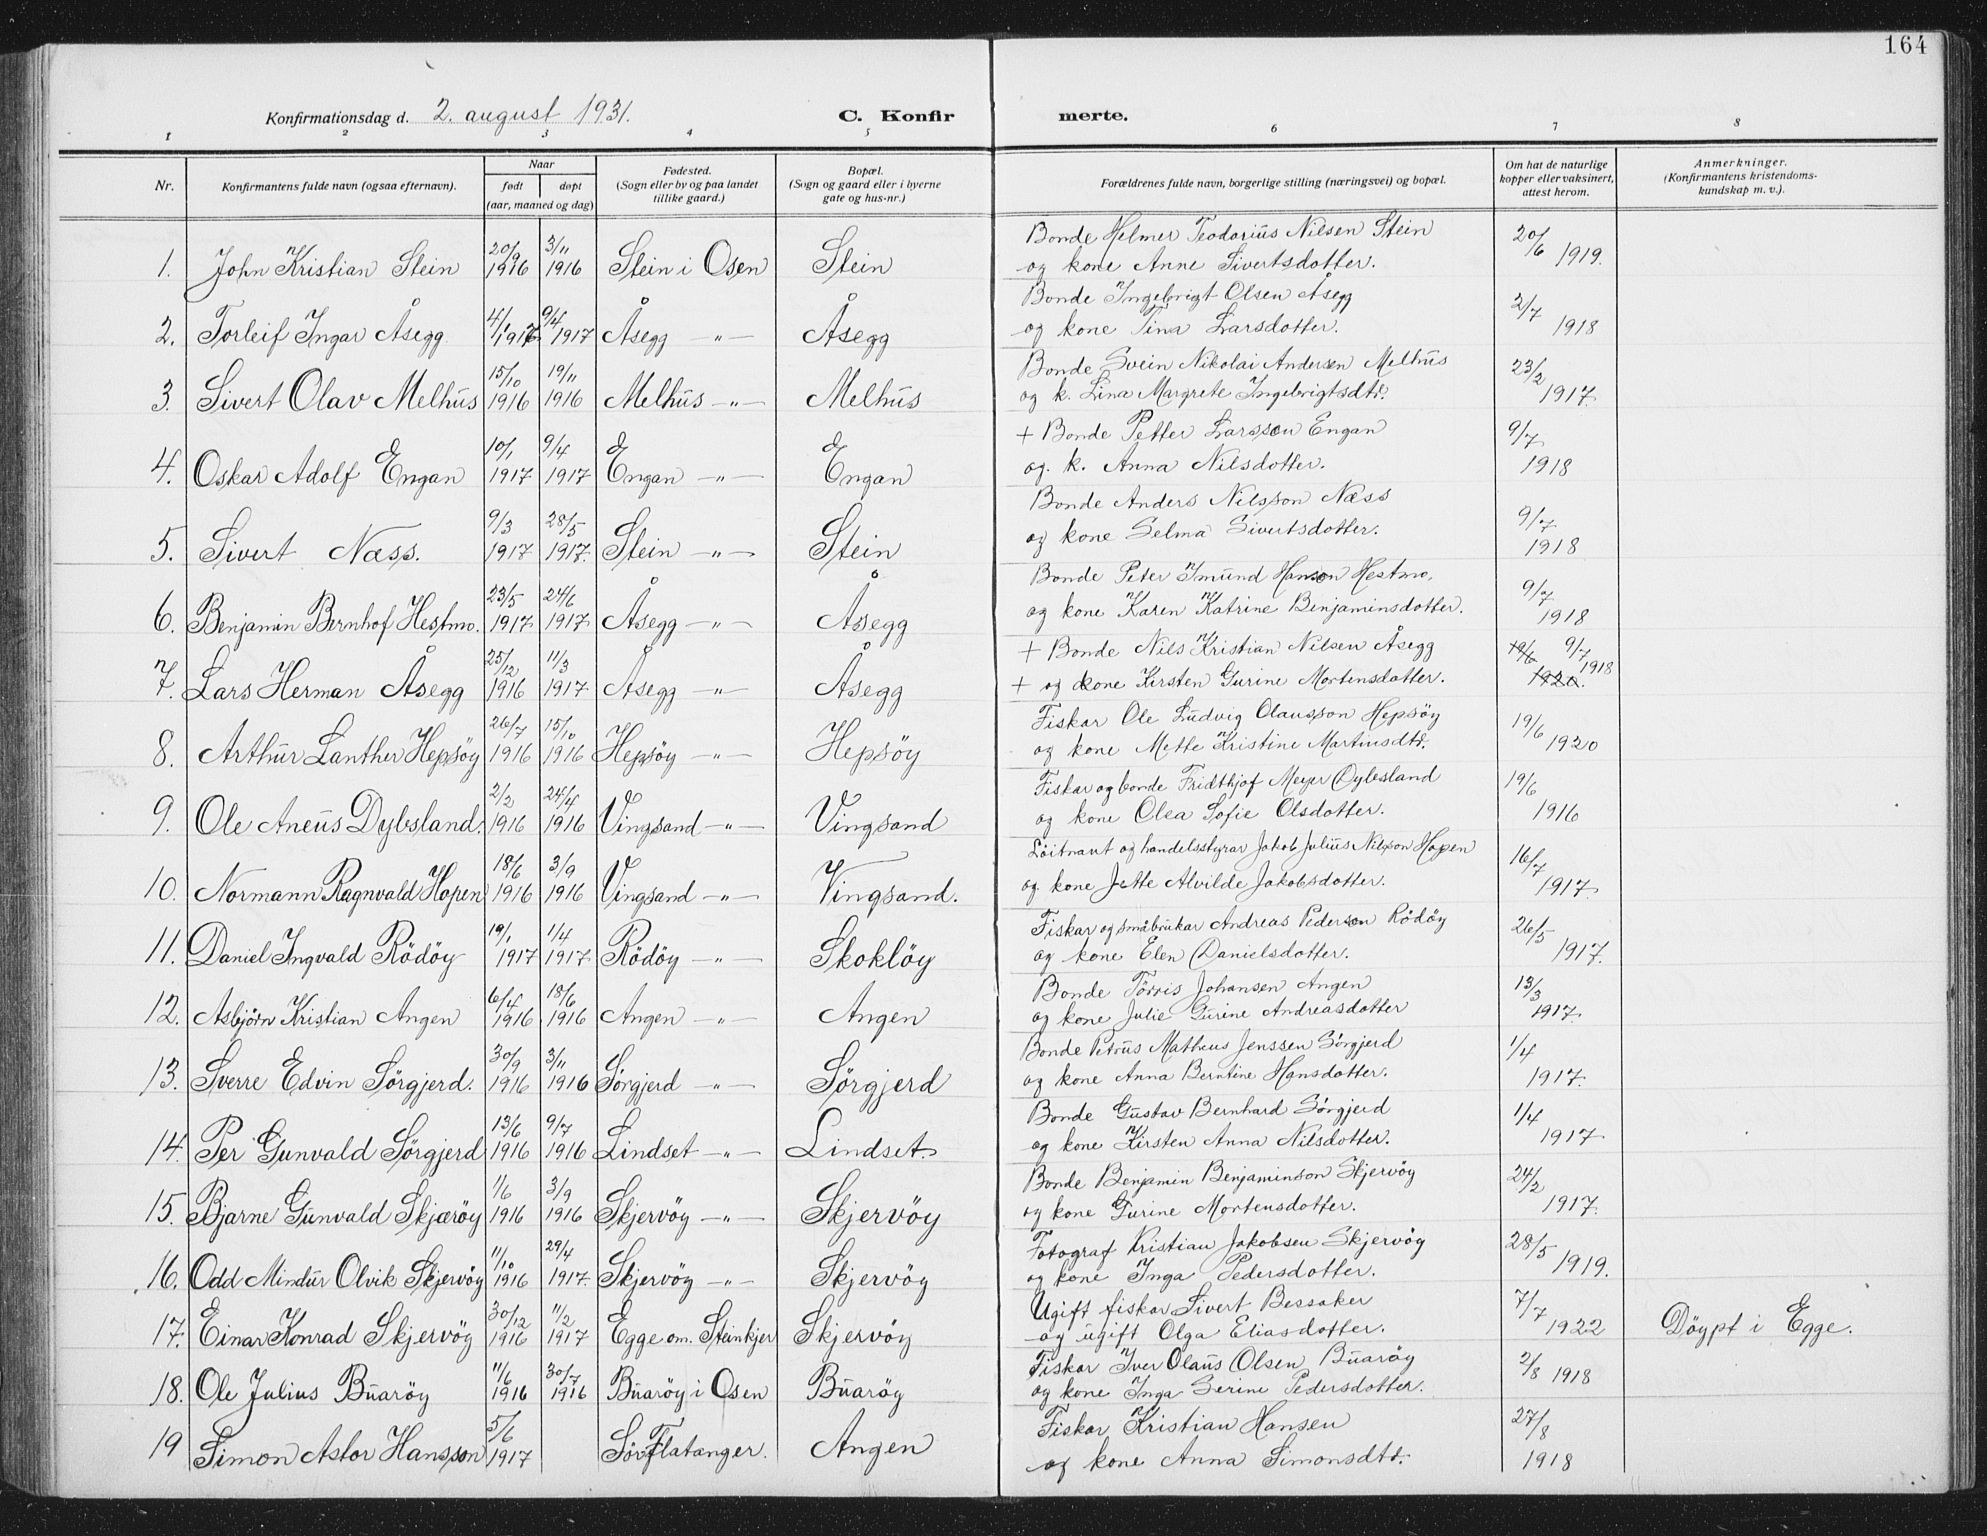 164
Konfirmationsdag d. 2. august 1931. C. Konfirmerte.
1 2 3 4 5 6 7 8
Nr. Konfirmantens fulde navn (ogsaa efternavn). Naar født døpt (aar, maaned og dag) Fødested. (Sogn eller by og paa landet tillike gaard.) Bopæl. (Sogn og gaard eller i byerne gate og hus-nr.) Forældrenes fulde navn, borgerlige stilling (næringsvei) og bopæl. Om hat de naturlige kopper eller vaksinert, attest herom. Anmerkninger. (Konfirmantens kristendomskundskap m. v.).
1. John Kristian Stein 20/9 1916 3/11 1916 Stein i Osen Stein Bonde Helmer Teodorius Nilsen Stein 20/6 1919.
og kone Anne Sivertsdotter.
2. Torleif Ingar Åsegg 4/1 1917 9/4 1917 Åsegg —"— Åsegg Bonde Ingebrigt Olsen Åsegg 2/7 1918
og kone Tina Larsdotter.
3. Sivert Olav Melhus 15/10 1916 19/11 1916 Melhus —"— Melhus Bonde Svein Nikolai Andersen Melhus 23/2 1917.
og k. Lina Margrete Ingebrigtsdtr.
4. Oskar Adolf Engan 10/1 1917 9/4 1917 Engan —"— Engan + Bonde Petter Larsson Engan 9/7 1918
og. k. Anna Nilsdotter.
5. Sivert Næss. 9/3 1917 28/5 1917. Stein —"— Stein Bonde Anders Nilsson Næss 9/7 1918
og kone Selma Sivertsdotter.
6. Benjamin Bernhof Hestmo. 23/5 1917 24/6 1917 Åsegg —"— Åsegg Bonde Peter Imund Hanson Hestmo. 9/7 1918
og kone Karen Katrine Benjaminsdotter.
7. Lars Herman Åsegg 25/12 1916 11/3 1917 Åsegg —"— Åsegg + Bonde Nils Kristian Nilsen Åsegg 19/6 1920. 9/7 1918
+ og kone Kirsten Gurine Mortensdotter.
8. Arthur Lanther Hepsöy 26/7 1916 15/10 1916 Hepsöy —"— Hepsöy Fiskar Ole Ludvig Olausson Hepsöy 19/6 1920
og kone Mette Kristine Martinsdtr.
9. Ole Aneus Dybsland. 2/2 1916 24/4 1916 Vingsand —"— Vingsand Fiskar og bonde Fridthjof Meyer Dybsland 19/6 1916
og kone Olea Sofie Olsdotter.
10. Normann Ragnvald Hopen 18/6 1916 3/9 1916 Vingsand —"— Vingsand. Löitnant og handelsstyrar Jakob Julius Nilsson Hopen 16/7 1917.
og kone Jette Alvilde Jakobsdotter.
11. Daniel Ingvald Rödöy 19/1 1917 1/4 1917 Rödöy —"— Skoklöy Fiskar og småbrukar Andreas Pederson Rödöy 26/5 1917.
og kone Elen Danielsdotter.
12. Asbjörn Kristian Angen 6/4 1916 18/6 1916 Angen —"— Angen Bonde Törris Johansen Angen 13/3 1917.
og kone Julie Gurine Andreasdotter
13. Sverre Edvin Sörgjerd. 30/9 1916 3/11 1916 Sörgjerd —"— Sörgjerd Bonde Petrus Matheus Jenssen Sörgjerd 1/4 1917.
og kone Anna Berntine Hansdotter.
14. Per Gunvald Sörgjerd 13/6 1916 9/7 1916 Lindset —"— Lindset. Bonde Gustav Bernhard Sörgjerd 1/4 1917.
og kone Kirsten Anna Nilsdotter.
15. Bjarne Gunvald Skjæröy 1/6 1916 3/9 1916 Skjervöy —"— Skjervöy Bonde Benjamin Benjaminson Skjervöy 24/2 1917.
og kone Gurine Mortensdotter.
16. Odd Mindur Olvik Skjervöy 11/10 1916 29/4 1917. Skjervöy —"— Skjervöy Fotograf Kristian Jakobsen Skjervöy 28/5 1919.
og kone Inga Pedersdotter.
17. Einar Konrad Skjervöy 30/12 1916 11/2 1917 Egge om. Steinkjer Skjervöy Ugift fiskar Sivert Bessaker 7/7 1922 Döypt i Egge.
og ugift Olga Eliasdotter.
18. Ole Julius Buaröy 11/6 1916 30/7 1916 Buaröy i Osen Buaröy Fiskar Iver Olaus Olsen Buaröy 2/8 1918
og kone Inga Serine Pedersdotter.
19 Simon Astor Hansson 5/6 1917 Sör Flatanger. Angen Fiskar Kristian Hansen 27/8 1918
og kone Anna Simonsdtr.